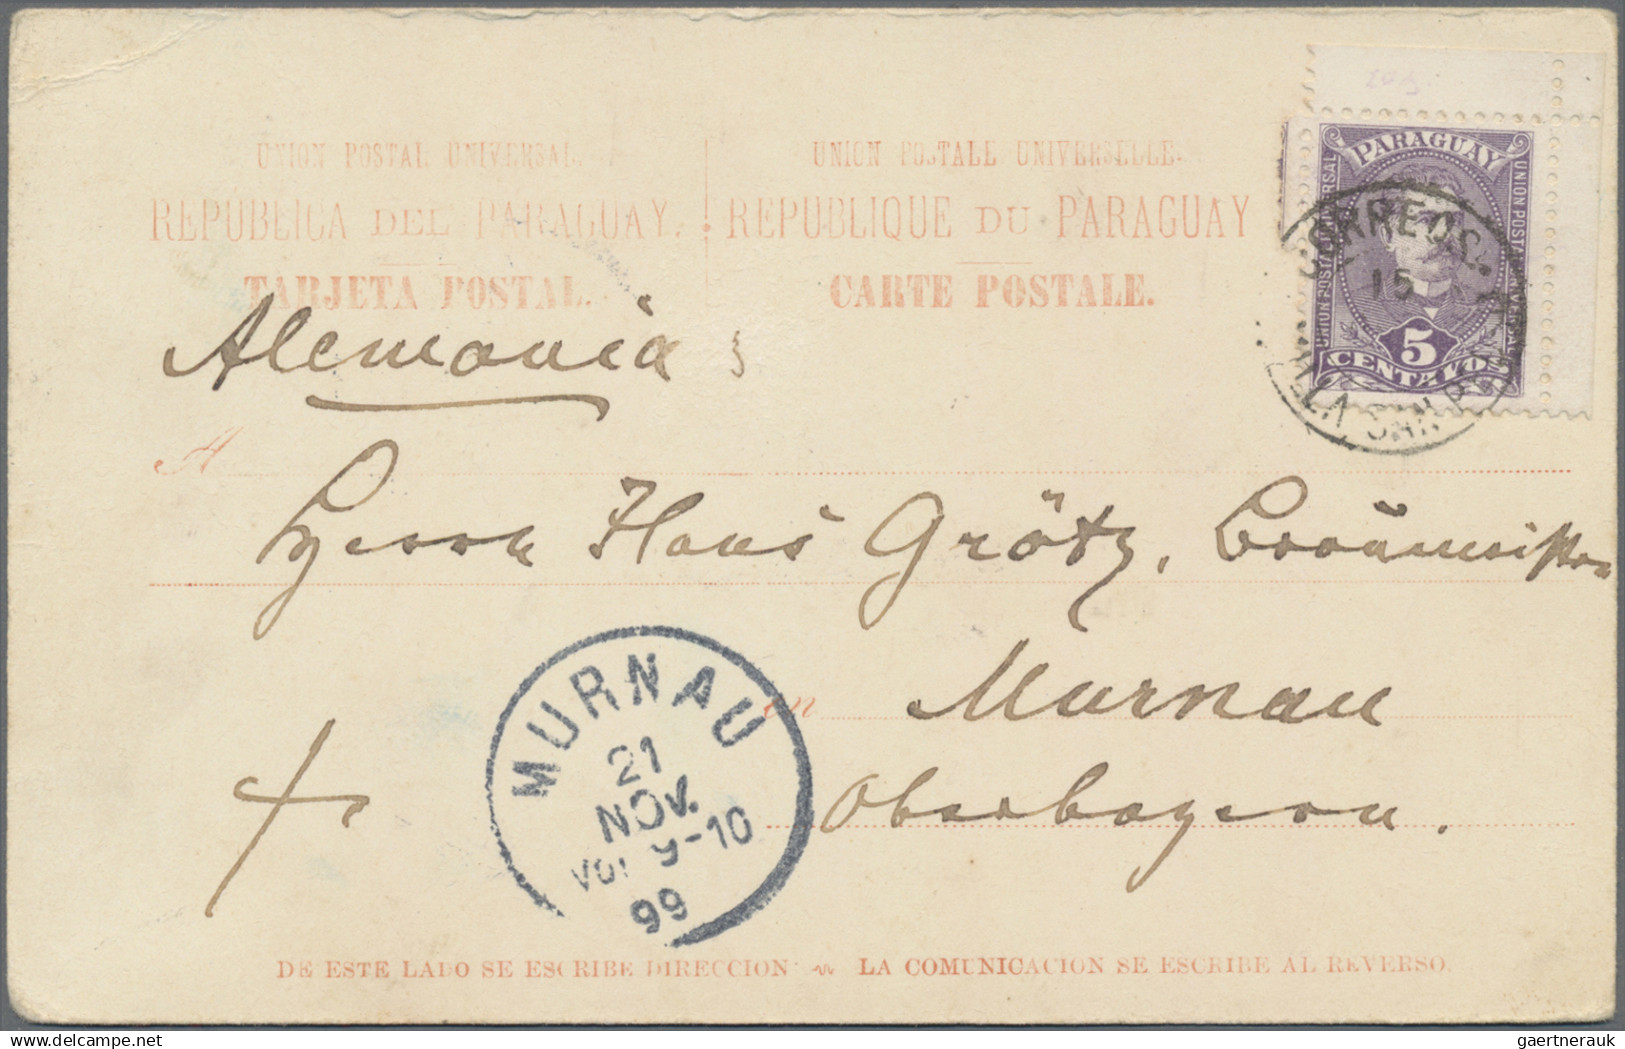 UNION POSTAL UNIVERSAL.
REPÚBLICA DEL PARAGUAY.
TARJETA POSTAL.
UNION POSTALE UNIVERSELLE.
REPUBLIQUE DU PARAGUAY
CARTE POSTALE.
PARAGUAY
UNION POSTAL UNIVERSAL
UNION POSTAL UNIVERSAL
5
CENTAVOS
CORREOS.
15
VILLA SAN PEDRO
Alemania
A
Herrn Hans Grötz, Bräumeister
en Murnau
Oberbayern.
MURNAU
21
NOV.
Vor 9-10
99
DE ESTE LADO SE ESCRIBE DIRECCION
LA COMUNICACION SE ESCRIBE AL REVERSO.
gaertnerauk